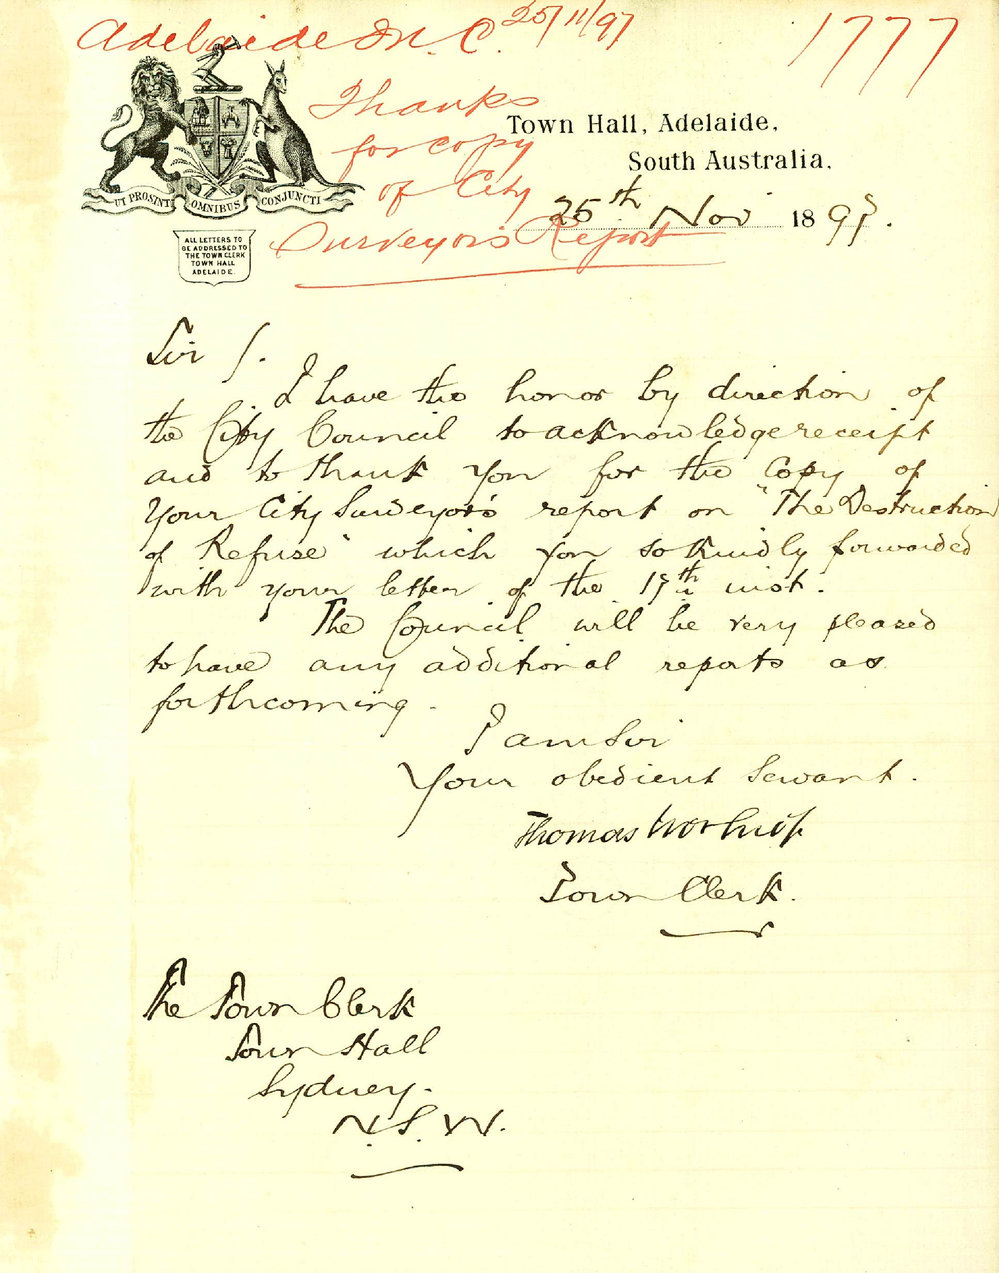 Adelaide M. C. 25/11/97
1777
Thanks
for copy
of City
Surveyor's Report
UT PROSINT OMNIBUS CONJUNCTI
ALL LETTERS TO
BE ADDRESSED TO
THE TOWN CLERK
TOWN HALL
ADELAIDE.
Town Hall, Adelaide,
South Australia.
25th Nov 1897.
Sir,
I have the honor by direction of
the City Council to acknowledge receipt
and to thank you for the Copy of
Your City Surveyor's report on "The Destruction
of Refuse" which you so kindly forwarded
with your letter of the 17th inst.
The Council will be very pleased
to have any additional reports as
forthcoming.
I am Sir
Your obedient Servant.
Thomas Worsnop
Town Clerk.
The Town Clerk
Town Hall
Sydney.
N.S.W.